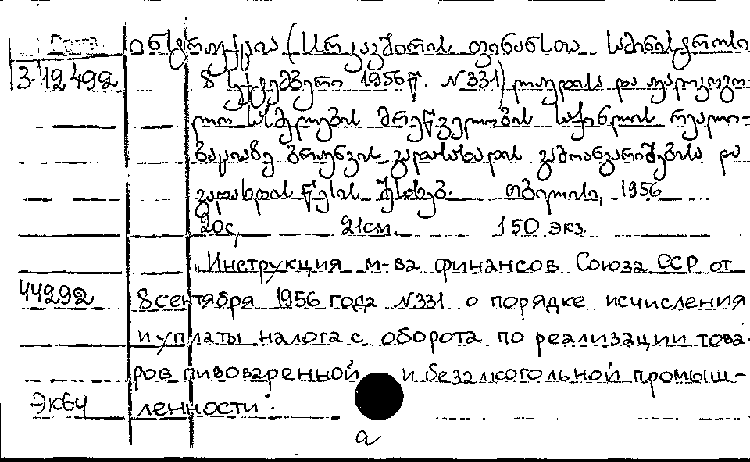 ინსტრუქცია (სსრ კავშირის ფინანსთა სამინისტროს
3-12.492 8 სექტემბერი 1956 წ. N 331) ლუდისა და უალკოჰო-
ლო სასმელების მრეწველობის საქონლის რეალი-
ზაციაზე ბრუნვის გადასახადის გამოანგარიშებისა და
გადახდის წესის შესახებ. თბილისი, 1956
20с, 21см. 150 экз.
Инструкция м-ва финансов Союза ССР от
44292 8 сентября 1956 года N331 о порядке исчисления
и уплаты налога с оборота по реализации това-
ров пивоваренной и безалкогольной промыш-
ленности.
а